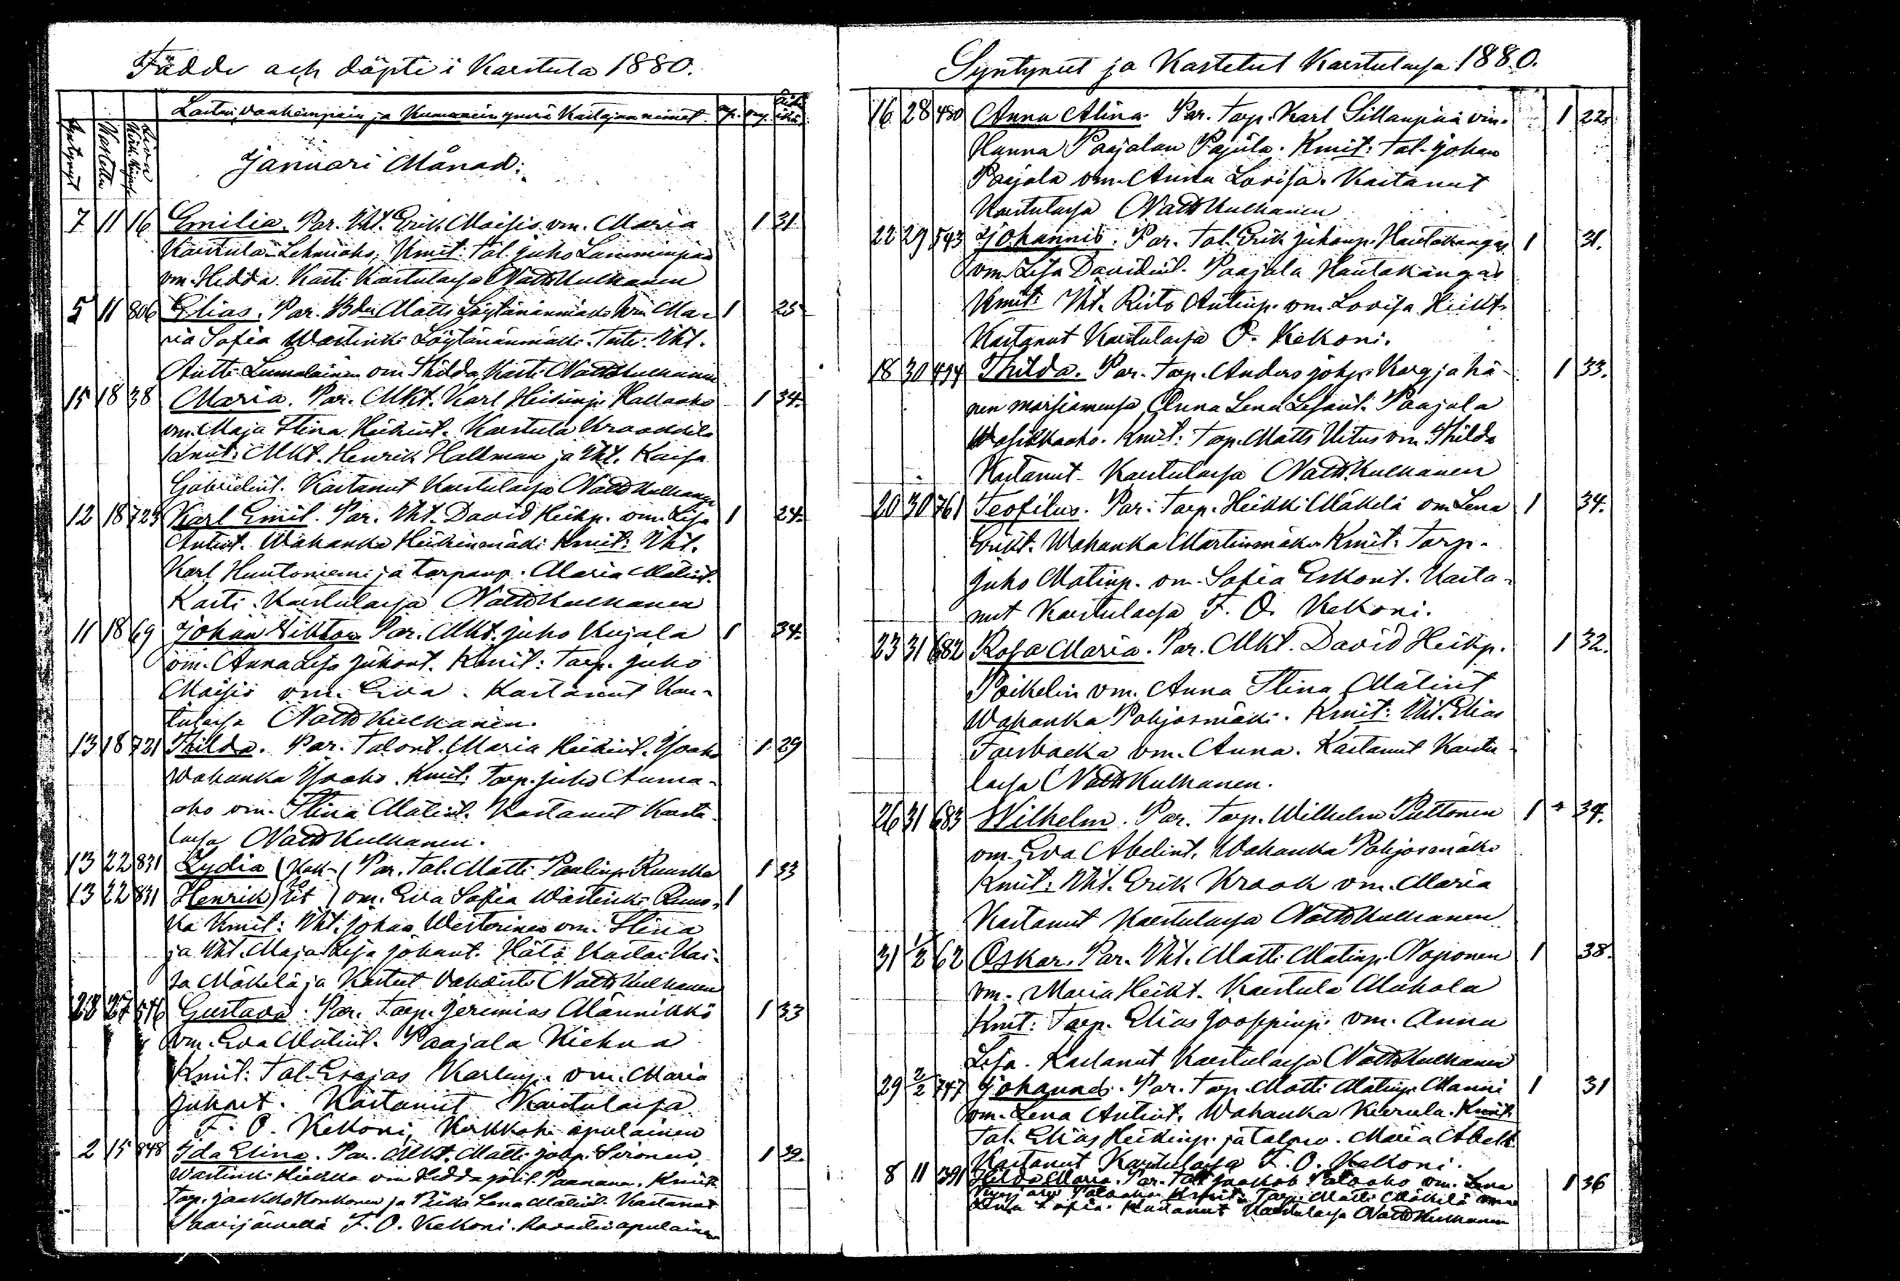 Födde och döpte i Karstula 1880.
Lasten, vanhempain ja Kummein ynnä Kastajan nimet. mp. vp. Äidin ikä.
Syntynyt Kastettu Sivu
Januari Månad:
7 11 16 Emilia. Par. Iht. Erik Maijis vm. Maria 1 31
Karstula Lehmiaho. Kmit: tal. Juho Lamminpää
vm. Hedda. Kasti Karstulassa Natt Kulhanen
5 11 806 Elias. Par. Bdn Matts Löytänänmäki vm Mar- 1 25
ia Sofia Wastinki Löytänänmäki. Tit. Iht.
Antti Lumalainen vm Thilda Kasti Natt Kulhanen
15 18 38 Maria. Par. Mkt. Karl Heikinp. Kallaaho 1 34.
vm. Maja Stina Heikint. Karstula Kroaddila
Kmit: Mkt. Henrik Hallman ja Iht. Kaisa
Gabrielint. Kastanut Karstulassa Natt Kulhanen
12 18 723 Karl Emil. Par. Iht. David Heikp. vm. Lisa 1 24.
Antint. Wahanka Heikinmäki Kmit: Iht.
Karl Huutoniemi ja torpanp. Maria Matint.
Kasti Karstulassa Natt Kulhanen
11 18 69 Johan Viktor Par. Mkt. Juho Kujala 1 34.
vm. Anna Lisa Juhont. Kmit: Torp. Juho
Maijis vm. Eva. Kastanut Kars-
tulassa Natt Kulhanen.
13 18 721 Thilda. Par. Talont. Maria Heikint. Ysaaho 1 29
Wahanka Ysaaho. Kmit: Torp. Juho Auma-
aho vm. Stina Matint. Kastanut Karstu-
lassa Natt Kulhanen.
13 22 831 Lydia (Kak- Par. Tal. Matti Paulinp. Ruuska 1 33
13 22 831 Henrik) sit vm. Eva Sofia Wastinki Ruus- 1
ka Kmit: Iht. Johan Westerinen vm. Stina
ja Iht. Maja Lisa Johant. Hätä Kastoi Kai-
sa Mäkelä ja Kasteet vahvisti Natt Kulhanen
22 27 546 Gustava. Par. Torp. Jeremias Männikkö 1 33
vm. Eva Matint. Paajala Kiehua
Kmit: Tal. Esajas Karlinp. vm. Maria
Juhont. Kastanut Karstulassa
F. O. Kekoni, Kirkkoh. apulainen
2 15 848 Ida Elina. Par. Mkt. Matti Johp. Piironen 1 39.
Wastinki Kiukka vm Hedda Joht. Paanana. Kmit:
Torp. Jaakko Honkonen ja Piika Lena Matint. Kastanut
Saarijärvellä F. O. Kekoni. Rovastin apulainen
Syntynut ja Kastetut Karstulassa 1880.
16 28 480 Anna Alina. Par. Torp. Karl Sillanpää vm. 1 22.
Hanna Paajalan Pajula. Kmit: Tal. Johan
Paajala vm. Anna Lovisa. Kastanut
Karstulassa Natt Kulhanen
22 29 543 Johannis. Par. Tal. Erik Juhanp. Hautakangas 1 31.
vm. Lisa Davidint. Paajala Hautakangas
Kmit: Iht. Risto Antinp. vm. Lovisa Heikt.
Kastanut Karstulassa O. Kekoni.
18 30 494 Thilda. Par. Torp. Anders Johp. Korg ja hä- 1 33.
nen morsiamensa Anna Lena Lisant. Paajala
Wasikkaaho. Kmit: Torp. Matts Witus vm. Thilda
Kastanut Karstulassa Natt Kulhanen
20 30 761 Teofilus. Par: Torp. Heikki Mäkelä vm Lena 1 34.
Erikt. Wahanka Martinmäki Kmit: Torp.
Juho Matinp. vm. Sofia Eskont. Kasta-
nut Karstulassa F. O. Kekoni.
23 31 682 Rosa Maria. Par. Mkt. David Heikp. 1 32.
Poikelin vm. Anna Stina Matint
Wahanka Pohjosmäki. Kmit: Iht. Elias
Forsbacka vm. Anna. Kastanut Karstu-
lassa Natt Kulhanen.
26 31 683 Wilhelm. Par. Torp. Wilhelm Puttonen 1 34.
vm. Eva Abelint. Wahanka Pohjosmäki
Kmit: Iht. Erik Krook vm. Maria
Kastanut Karstulassa Natt Kulhanen
31 1/2 62 Oskar. Par. Iht. Matti Matinp. Noponen 1 38.
vm. Maria Heikt. Karstula Muhola
Kmit: Torp. Elias Joosppinp. vm. Anna
Lisa. Kastanut Karstulassa Natt Kulhanen
29 2/2 747 Johannes. Par. Torp. Matti Matinp. Manni 1 31
vm. Lena Antint. Wahanka Kierula. Kmit:
Tal. Elias Heikinp. ja talonv. Maria Abelt.
Kastanut Karstulassa F. O. Kekoni.
8 11 391 Hilda Maria. Par. Tal. Jaakob Paloaho vm. Lena 1 36
Paloaho. Kmit: Torp. Matti Mäkelä vm.
Sofia. Kastanut Karstulassa Natt Kulhanen